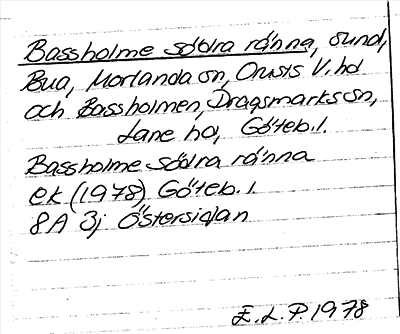 Bassholme södra ränna, sund,
Bua, Morlanda sn, Orusts V. hd
och Bassholmen, Dragsmarks sn,
Lane hd, Göteb. l.
Bassholme södra ränna
ek (1978), Göteb. l.
8A 3j Östersidan
E. L. P. 1978